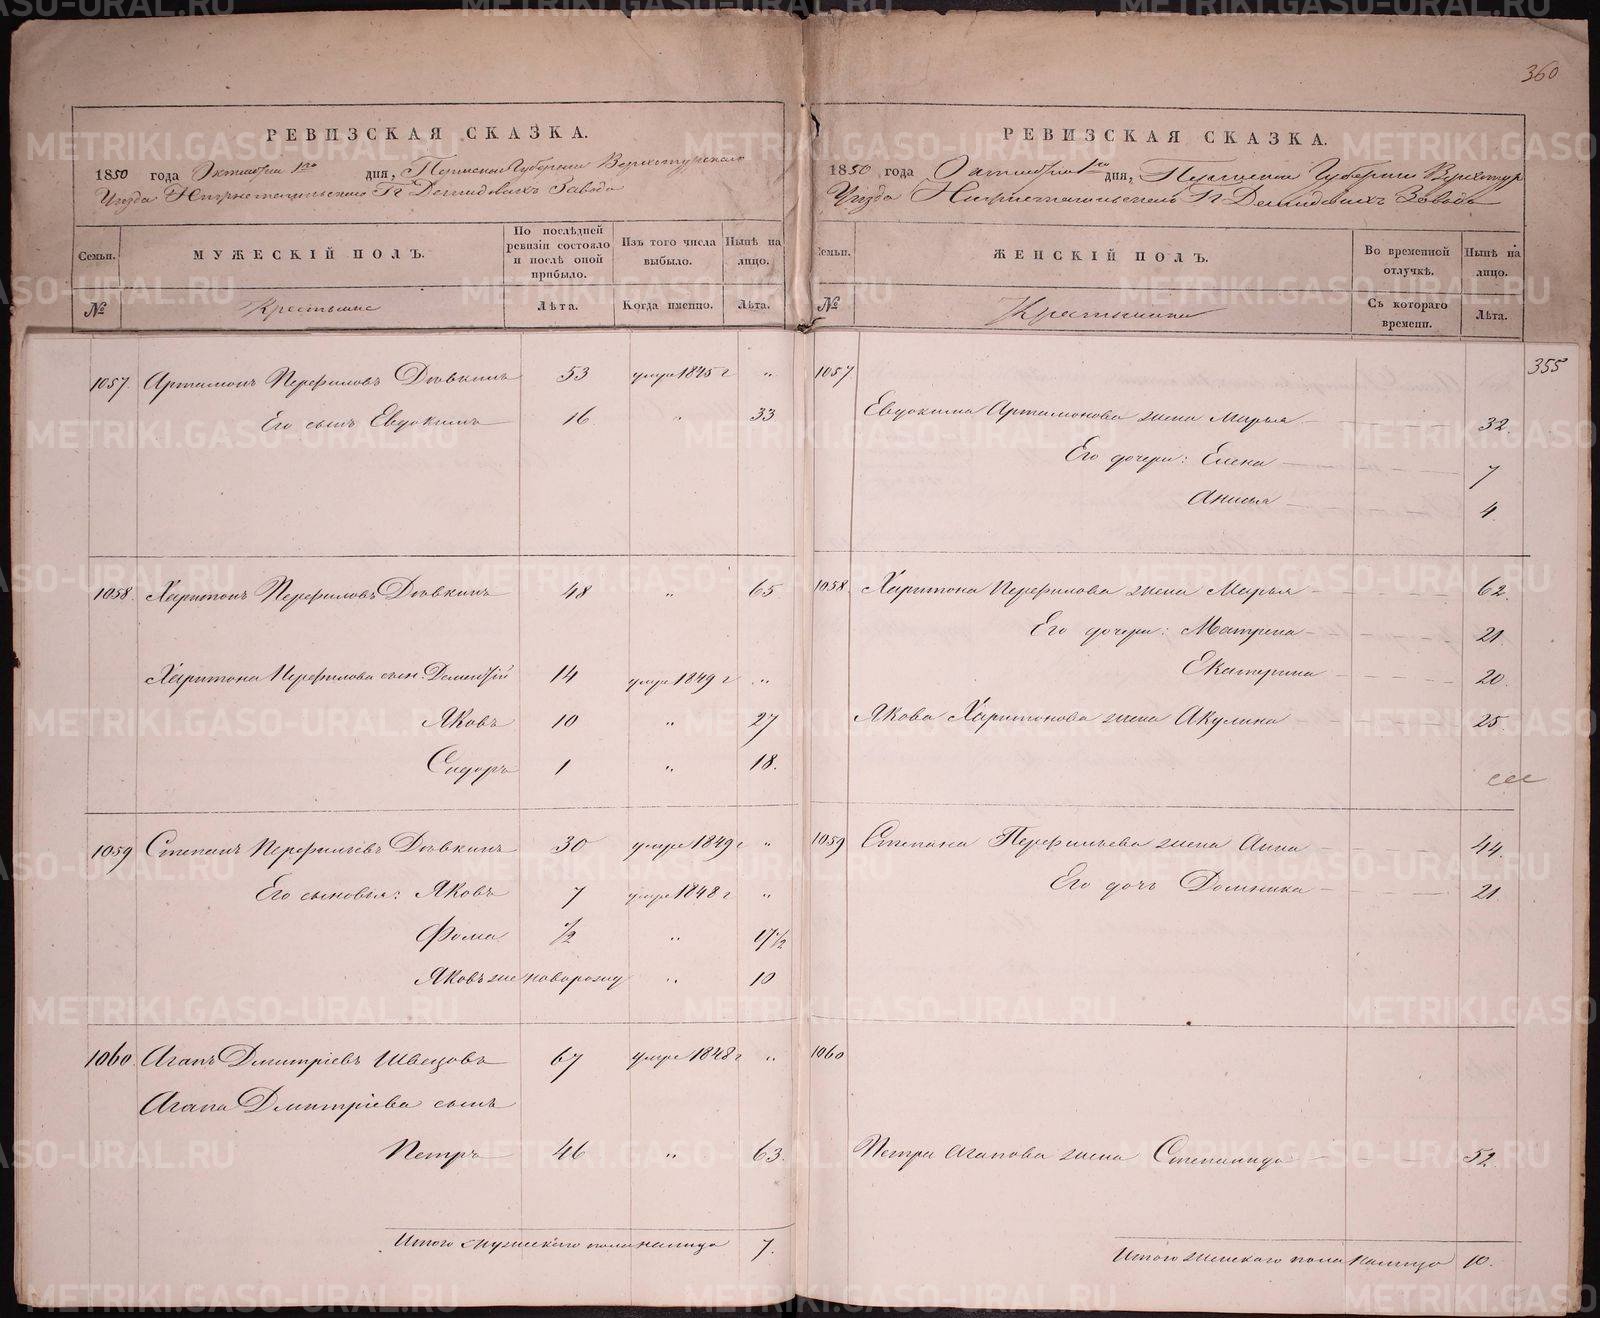 360
РЕВИЗСКАЯ СКАЗКА.
1850 года Октября 1го дня, Пермской Губернии Верхотурскаго
Уезда Нижнетагильскаго Гг Демидовыхъ Завода
Семьи. МУЖЕСКІЙ ПОЛЪ. По послѣдней ревизіи состояло и послѣ оной прибыло. Изъ того числа выбыло. Нынѣ на лицо.
№ Крестьяне Лѣта. Когда именно. Лѣта.
1057. Артамонъ Перфиловъ Дѣвкинъ 53 умре 1845 г "
Его сынъ Евдокимъ 16 " 33
1058. Харитонъ Перфиловъ Дѣвкинъ 48 " 65
Харитона Перфилова сын. Дементій 14 умре 1849 г "
Яковъ 10 " 27
Сидоръ 1 " 18.
1059 Степанъ Перфильевъ Дѣвкинъ 30 умре 1849 г "
Его сыновья: Яковъ 7 умре 1848 г "
Фома 1/2 " 17 1/2
Яковъ же новорожд " 10
1060. Агапъ Дмитріевъ Швецовъ 67 умре 1848 г "
Агапа Дмитріева сынъ
Петръ 46 " 63.
Итого мужескаго пола налицо 7.
РЕВИЗСКАЯ СКАЗКА.
1850 года Октября 1го дня, Пермской Губернии Верхотур
Уезда Нижнетагильскаго Гг Демидовыхъ Завода
Семьи. ЖЕНСКІЙ ПОЛЪ. Во временной отлучкѣ. Нынѣ на лицо.
№ Крестьянки Съ котораго времени. Лѣта.
355
1057
Евдокима Артамонова жена Марья 32.
Его дочери: Елена 7
Анисья 4
1058. Харитона Перфилова жена Марья 62.
Его дочери: Матрена 21
Екатерина 20.
Якова Харитонова жена Акулина 25
1059 Степана Перфильева жена Анна 44.
Его дочь Домника 21
1060
Петра Агапова жена Степанида 52.
Итого женскаго пола налицо 10.
METRIKI.GASO-URAL.RU